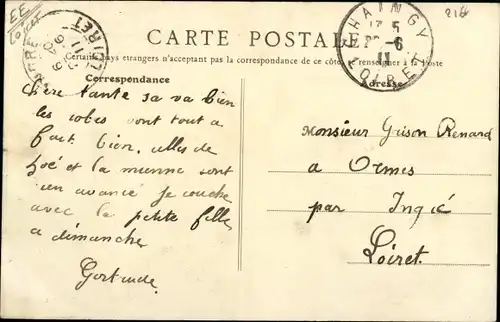 EE
Loiret
216
CARTE POSTALE
Certains pays étrangers n'acceptent pas la correspondance de ce côté. (Se renseigner à la Poste
Correspondance
Adresse
CHAINGY
17 5
-6
11
LOIRET
LOIRET
Chère tante sa va bien
les robes vont tout a
fait bien, celles de
Zoé et la mienne sont
bien avancé je couche
avec la petite fille
a dimanche
Gertrude
Monsieur Grison Renard
a Ormes
par Ingré
Loiret.